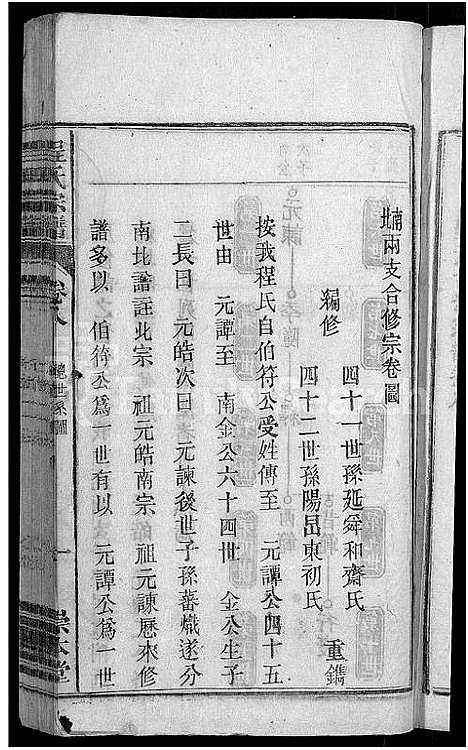 南北兩支合修宗卷圖
四十一世孫延舜和齋氏
編修
重鐫
四十二世孫陽昌東初氏
按我程氏自伯符公受姓傳至 元譚公四十五
世由 元譚至 南金公六十四世 金公生子
二長曰 元皓次曰 元諫後世子孫蕃熾遂分
南北譜註北宗 祖元皓南宗 祖元諫歷來修
譜多以 伯符公為一世有以 元譚公為一世
程氏宗譜
卷八
統世系圖
一
崇本堂